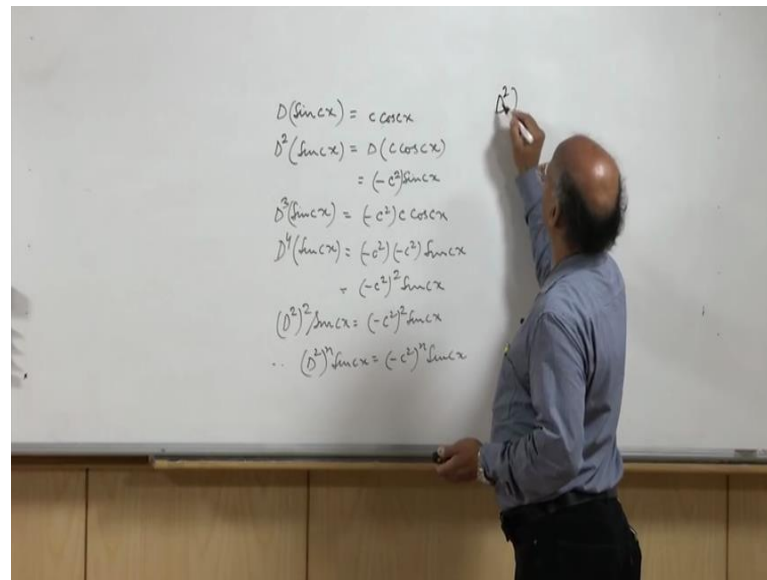 D(Sincx) = c coscx
D²(Sincx) = D(c coscx)
= (-c²)Sincx
D³(Sincx) = (-c²)c coscx
D⁴(Sincx) = (-c²)(-c²) Sincx
= (-c²)² Sincx
(D²)² Sincx = (-c²)² Sincx
∴ (D²)ⁿ Sincx = (-c²)ⁿ Sincx